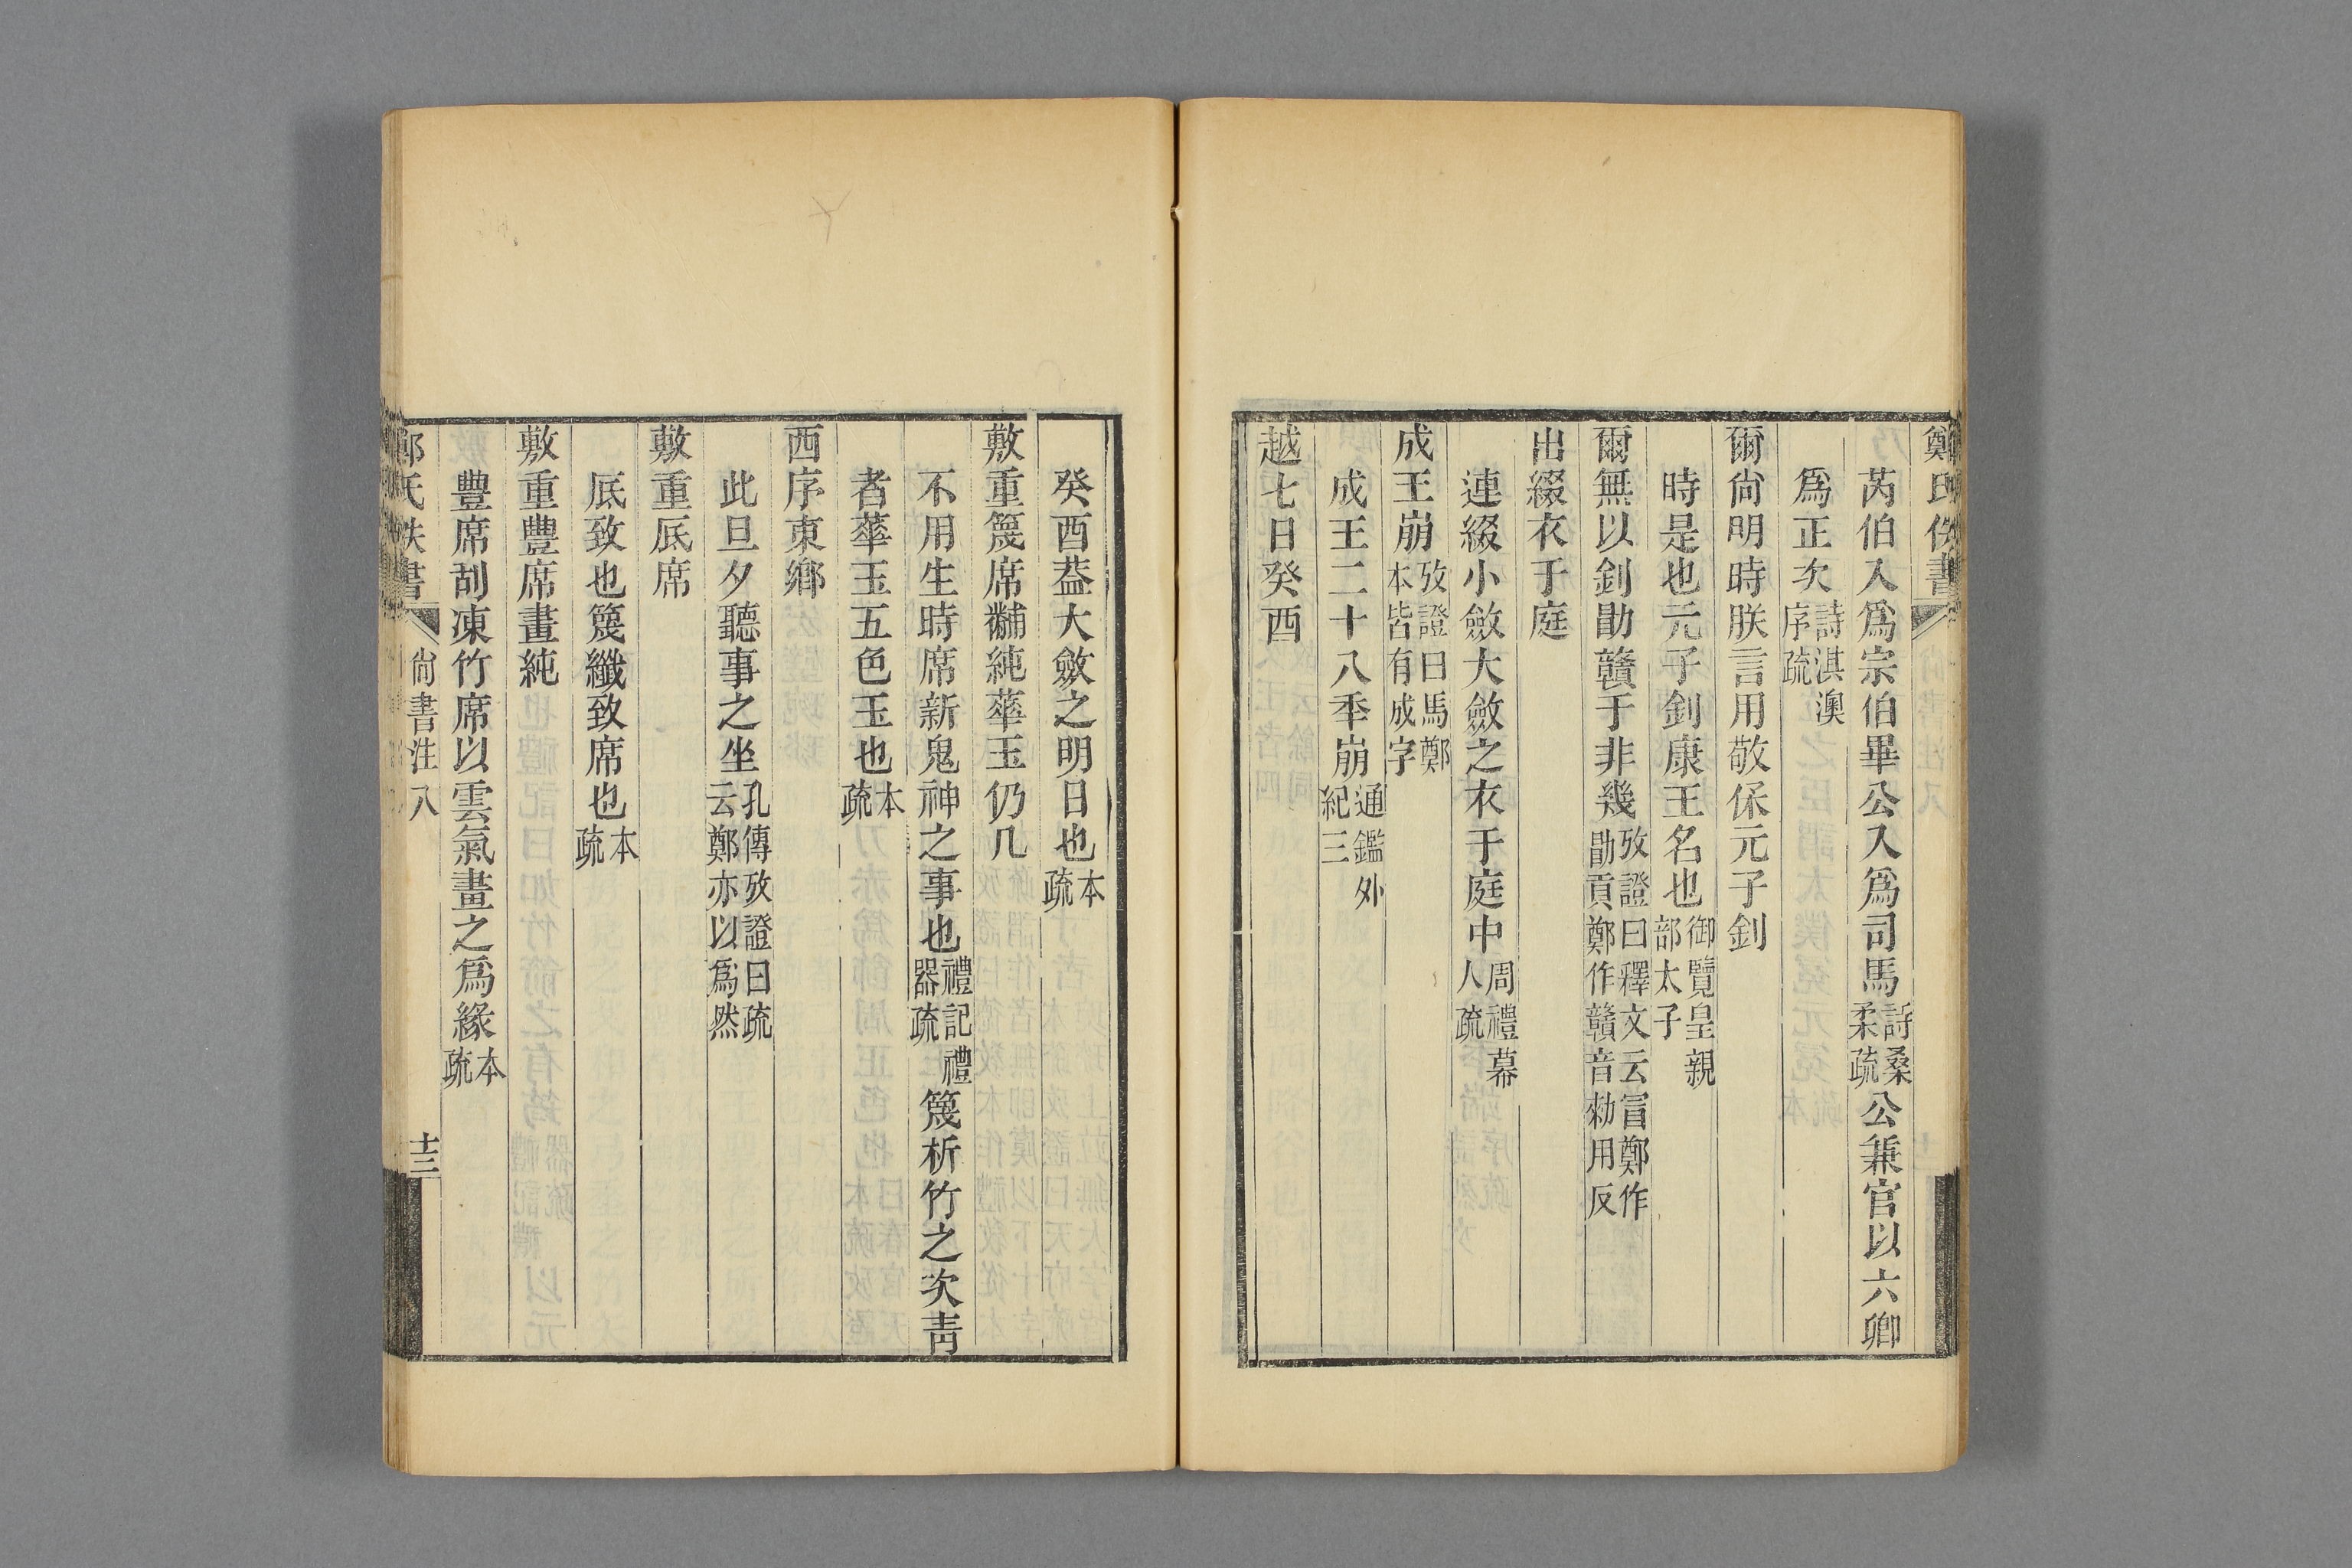 鄭氏佚書
芮伯入爲宗伯畢公入爲司馬詩桑柔疏公兼官以六卿
爲正次詩淇澳序疏
爾尙明時朕言用敬保元子釗
時是也元子釗康王名也御覽皇親部太子
爾無以釗勖贛于非幾攷證曰釋文云冒鄭作勖貢鄭作贛音勑用反
出綴衣于庭
連綴小斂大斂之衣于庭中周禮幕人疏
成王崩攷證曰馬鄭本皆有成字
成王二十八年崩通鑑外紀三
越七日癸酉
癸酉葢大斂之明日也本疏
敷重篾席黼純華玉仍几
不用生時席新鬼神之事也禮記禮器疏篾析竹之次靑
者華玉五色玉也本疏
西序東鄉
此旦夕聽事之坐孔傳攷證曰疏云鄭亦以爲然
敷重厎席
厎致也篾纖致席也本疏
敷重豐席畫純
豐席刮凍竹席以雲氣畫之爲緣本疏
鄭氏佚書 尙書注八 十三